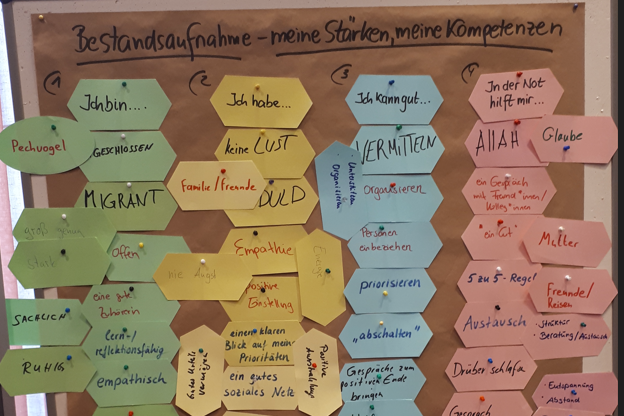 Bestandsaufnahme – meine Stärken, meine Kompetenzen
1
Ich bin....
Pechvogel
GESCHLOSSEN
MIGRANT
groß
stark
Offen
eine gute
Zuhörerin
SACHLICH
lern-/
reflektionsfähig
RUHIG
empathisch
2
Ich habe...
keine LUST
Familie/Freunde
DULD
Empathie
Energie
nie Angst
positive
Einstellung
einen klaren
Blick auf meine
Prioritäten
Positive
Ausstrahlung
ein gutes
soziales Netz
3
Ich kann gut...
VERMITTELN
Unterstützen
Organisieren
Organisieren
Personen
einbeziehen
priorisieren
"abschalten"
Gespräche zum
positiven Ende
bringen
4
In der Not
hilft mir...
Allah
Glaube
ein Gespräch
mit Freund*innen/
Kolleg*innen
"ein Cut"
Mutter
5 zu 5-Regel
Freunde/
Reisen
Austausch
Beratung/Austausch
Drüber schlafen
Entspannung
Abstand
Gespräch